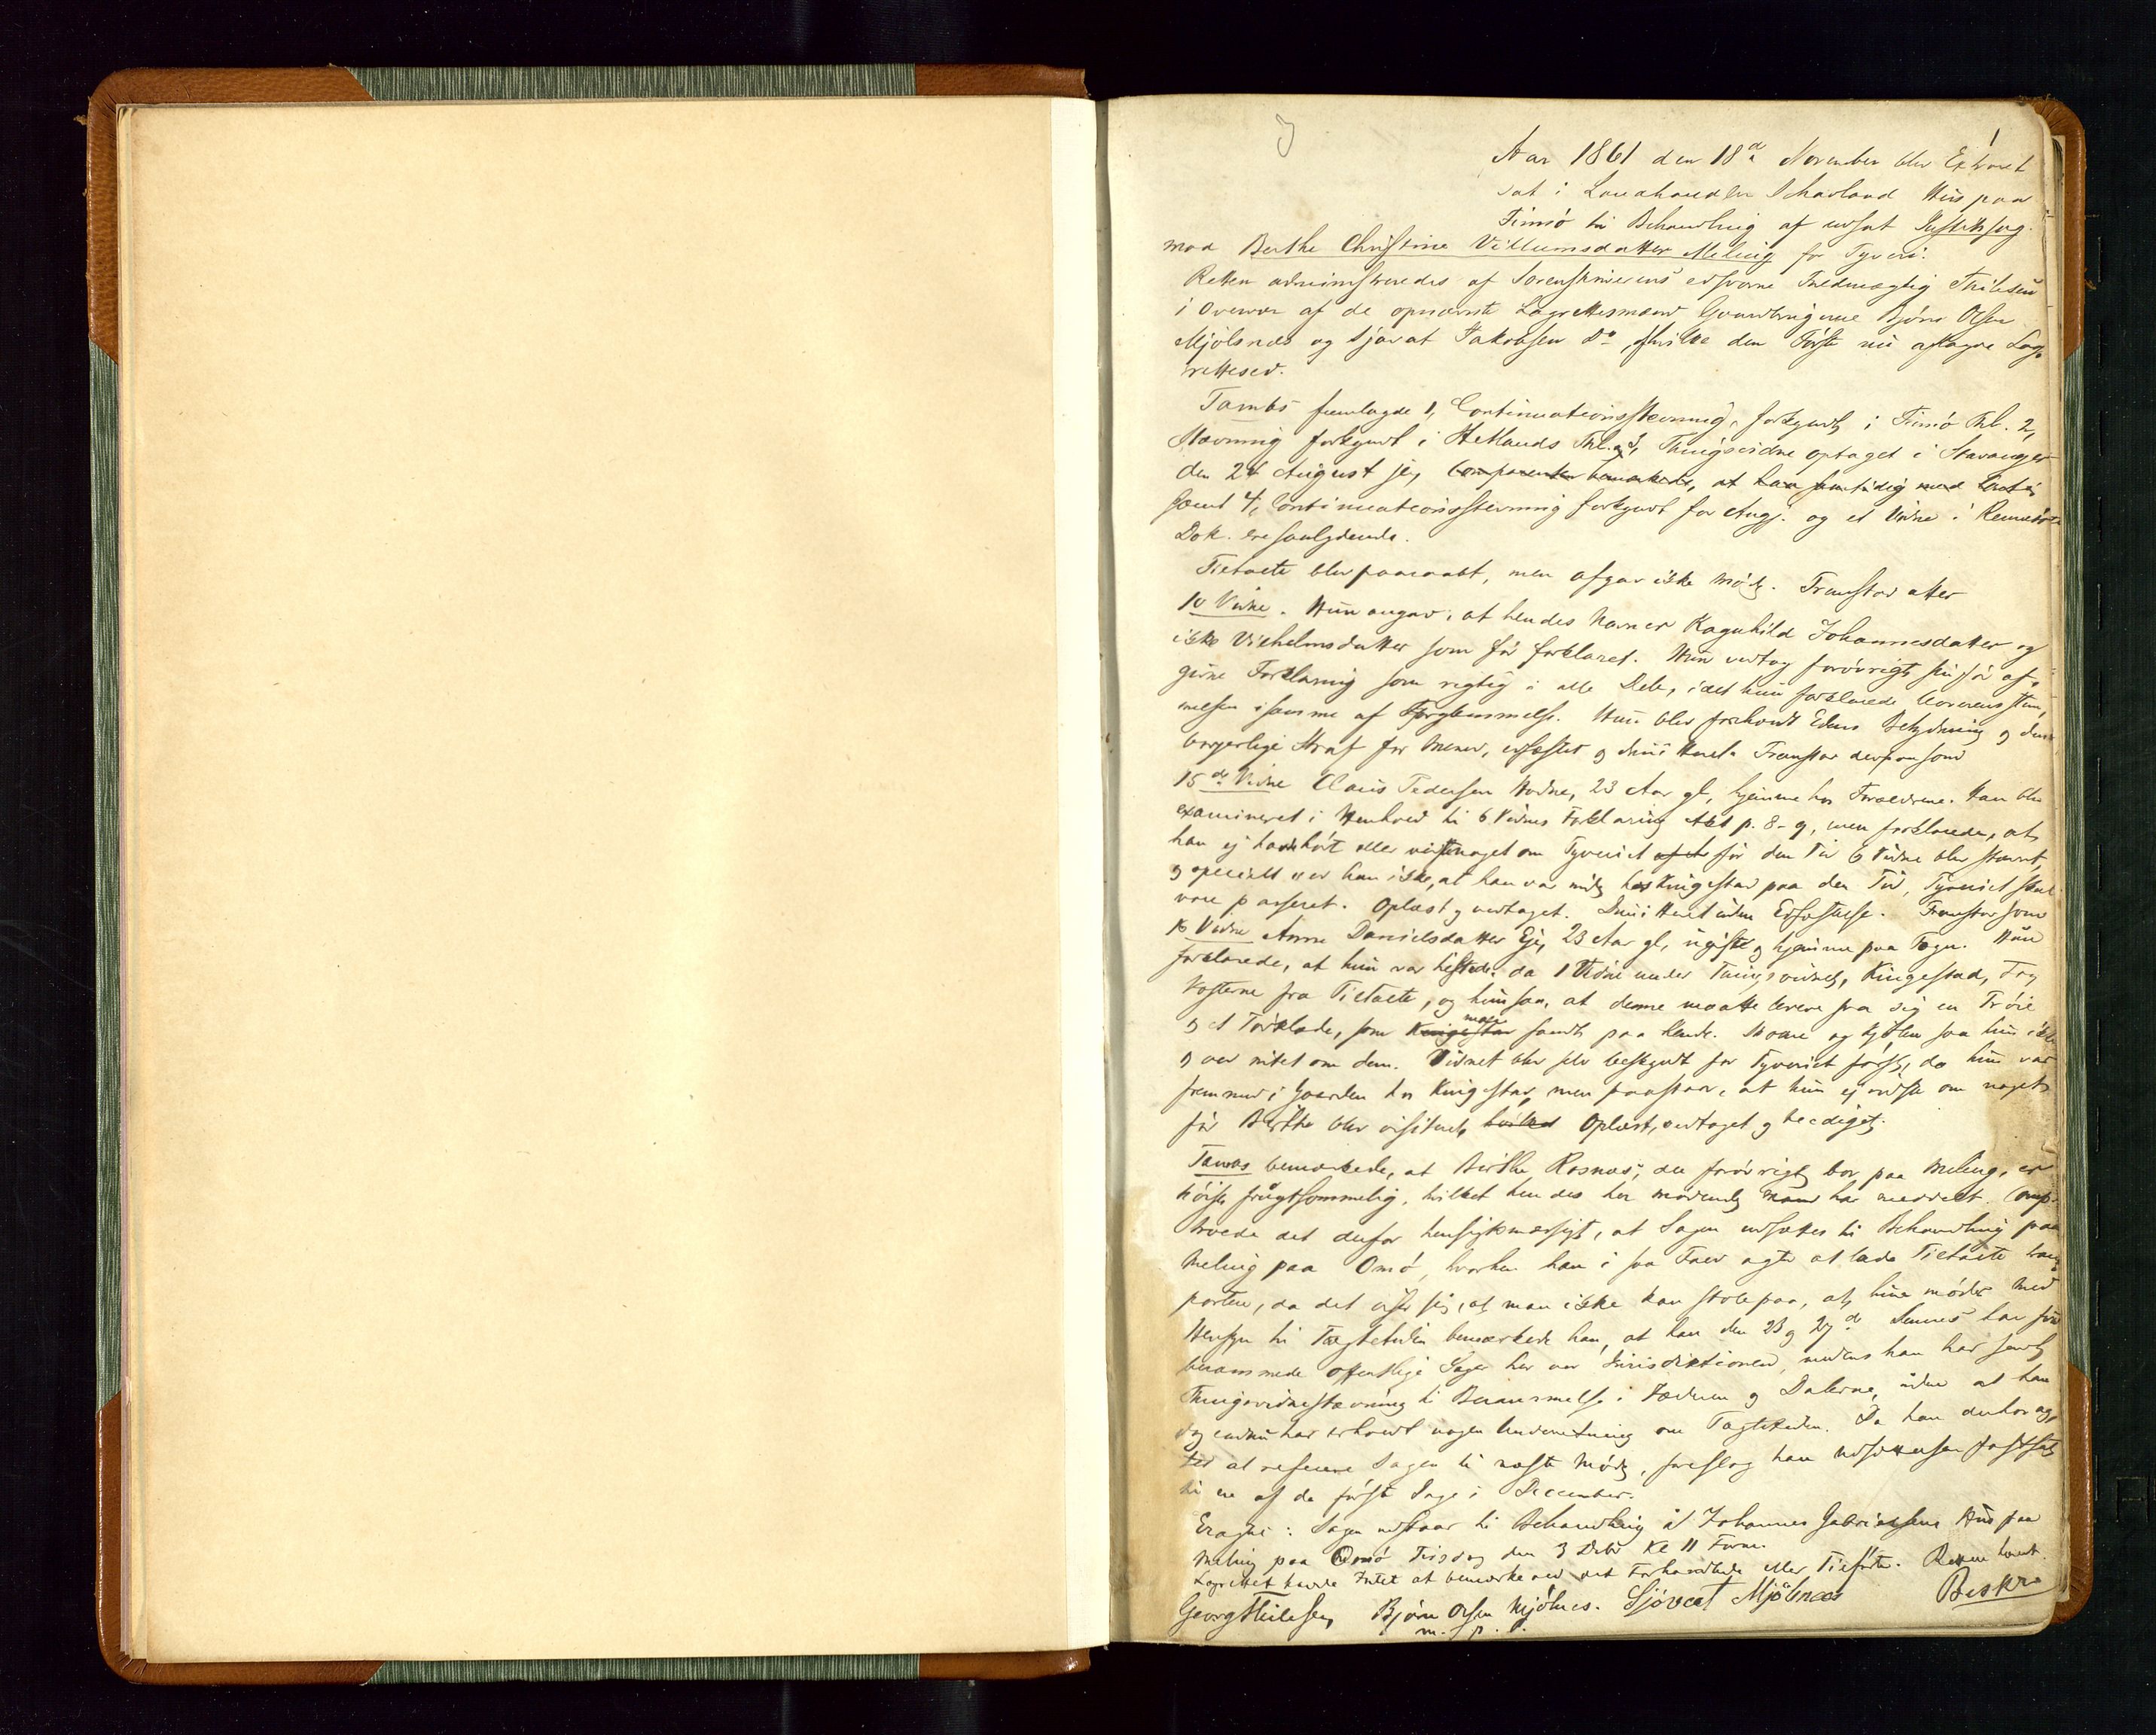 1
Aar 1861 den 18de November blev Extraret
sat i Landhandler Schavland Huus paa
Finnö til Behandling af udsat Justitssag
mod Berthe Christine Villumsdatter Meling for Tyveri.
Retten administreredes af Sorenskriverens edsvorne Fuldmægtig Thilesen
i Overvær af de opnævnte Lagrettesmænd Gaardbrugerne Björn Olsen
Mjölsnes og Sjovat Jakobsen Do, hvilke den Förste nu aflagde Lag-
rettesed.
Tambs fremlagde 1, Continuationsstevning, forkyndt i Finnö Thl. 2,
Stævning forkyndt i Hetlands Thl. og 3, Thingsvidne optaget i Stavanger
den 24 August sj, Comparenten bemærkede, at han samtidig med
samt 4, Continuationsstevning forkyndt for Ang. og et Vidne i
Dok. ere saalydende.
Tiltalte blev paaraabt, men afgav ikke Möde. Fremstod atter
10 Vidne. Hun angav, at hendes Navn er Ragnhild Johannesdatter og
ikke Vilhelmsdatter som för forklaret. Hun vedtog forövrigt sin för af-
givne Forklaring som rigtig i alle Dele, idet hun forklarede Uoverensstem-
melsen i samme af Forglemmelse. Hun blev foreholdt Edens Betydning og dens
borgerlige Straf for Mened, edfæstet og dimitteret. Fremstod derpaa som
15de Vidne Claus Pedersen Hodne, 23 Aar gl, hjemme hos Forældrene. Han blev
examineret i Henhold til 6 Vidnes Forklaring Akt p. 8-9, men forklarede, at
han ej havde hört eller vidst noget om Tyveriet för den Tid 6 Vidne blev stævnt,
og specielt ved han ikke, at han var inde hos Kingestad paa den Tid, Tyveriet skal
være passeret. Oplæst og vedtaget. Dimitteret uden Edfæstelse. Fremstod som
16 Vidne Anne Danielsdatter Eje, 23 Aar gl, ugift og hjemme paa Fogn. Hun
forklarede, at hun var tilstede, da 1 Vidne under Thingsvidnet, Kingestad, tog
Kosterne fra Tiltalte, og hun saa, at denne maatte levere fra sig en Tröie
og et Törklæde, som Kingestad man fandt paa hende. Skoene og Kjolen saa hun ikke
og ved intet om dem. Vidnet blev selv beskyldt for Tyveriet först, da hun var
fremmed i Gaarden hos Kingestad, men paastaar, at hun ej vidste om noget
för Berthe blev visiteret, hvilket Oplæst, vedtaget og beediget.
Tambs bemærkede, at Birthe Rosnæs, der forövrigt bor paa Meling, er
höist frugtsommelig, hvilket hendes her mödende Mand har meddelt. Comp.
troede det derfor hensigtsmæssigt, at Sagen udsættes til Behandling paa
Meling paa Omö, hvorhen han i saa Fald agter at lade Tiltalte trans-
portere, da det viser sig, at man ikke kan stole paa, at hun möder. Med
Hensyn til Tægtetiden bemærkede han, at han den 23 og 27de Dennes har
berammede offentlige Sager her ved Jurisdiktionen, medens han har sendt
Thingsvidnestævning til Berammelse i Jæderen og Dalerne, uden at han
dog endnu har erholdt nogen Underretning om Tægtetiden. Da han derhos ag-
ted at referere Sagen til næste Möde, foreslog han Udsættelsen fastsat
til en af de förste Dage i December.
Eragtet: Sagen udstaar til Behandling i Johannes Gabrielsens Hus paa
Meling paa Omö Tirsdag den 3 Decbr Kl 11 Form.
Lagrettet havde Intet at bemærke ved det Forhandlede eller Tilförte. Retten hævet.
Georg Thilesen, Björn Olsen Mjölnes. Sjövat Mjölsnæs Beskr.
m. f. p.